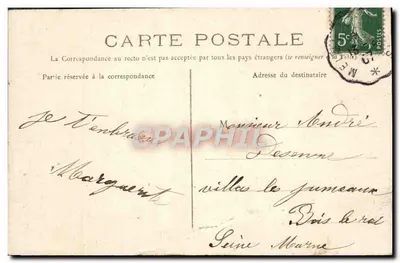 CARTE POSTALE
La Correspondance au recto n'est pas acceptée par tous les pays étrangers (se renseigner
Partie réservée à la correspondance
Adresse du destinataire
5c
POSTES
07
Je t'embrasse
Marguerite
Monsieur André
villas les jumeaux
Bois le roi
Seine Marne
CPAPHIL